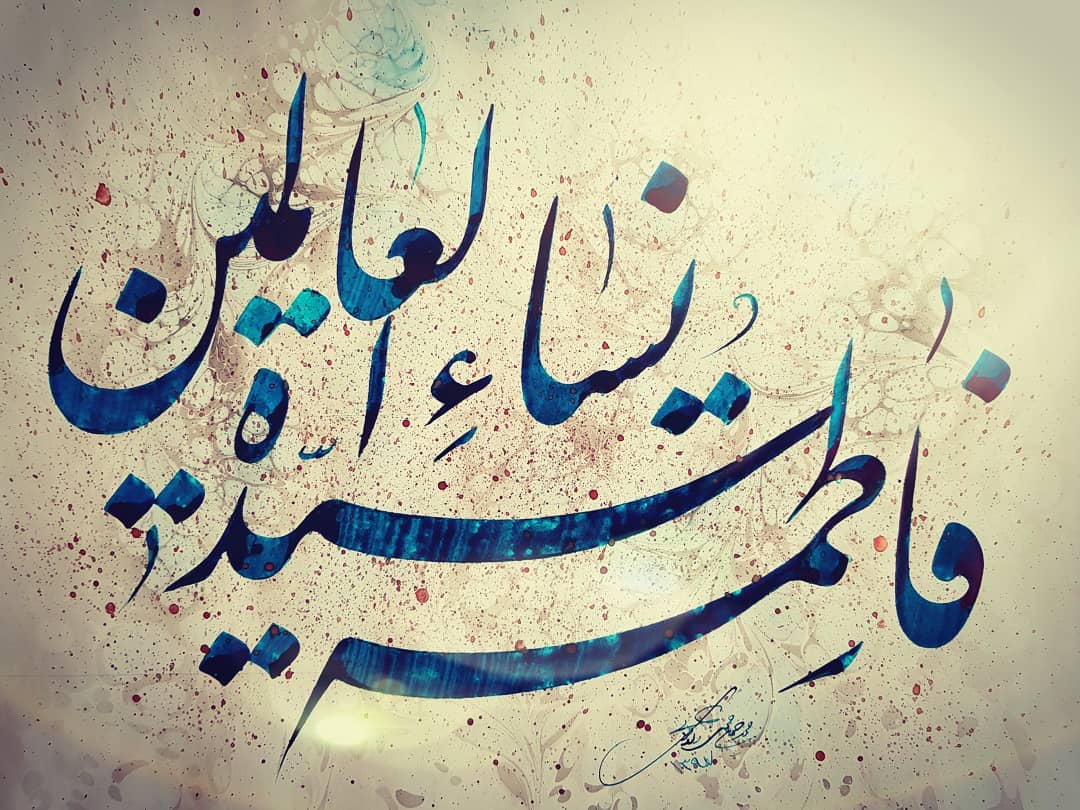 فاطِمة سیّدة
نساءِ العالمین
۱۳۹۷